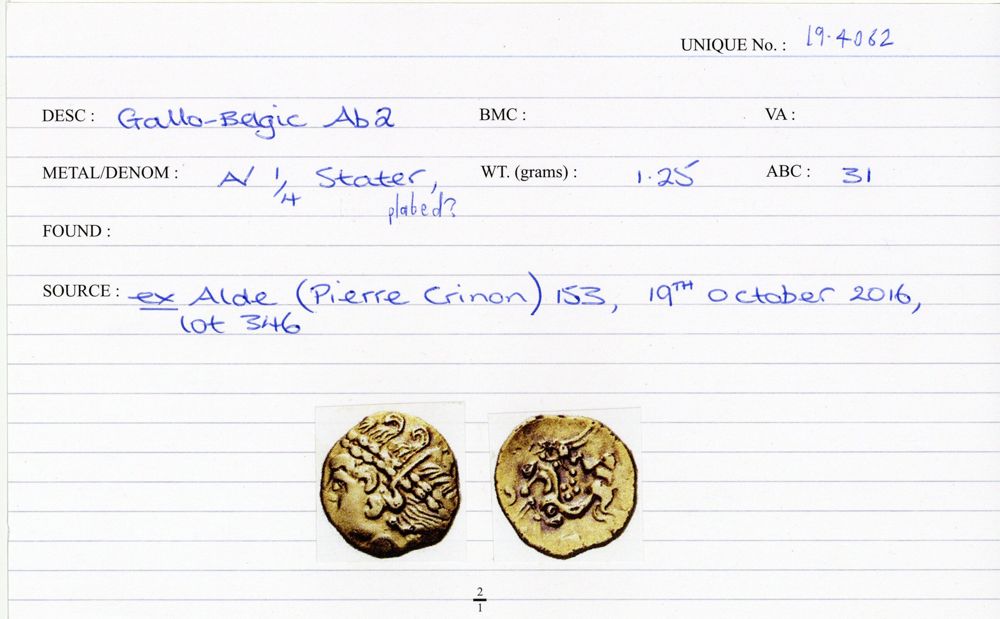 UNIQUE No. : 19.4062
DESC : Gallo-Belgic Ab2 BMC : VA :
METAL/DENOM : A/ 1/4 Stater, WT. (grams) : 1.25 ABC : 31
plated?
FOUND :
SOURCE : ex Alde (Pierre Crinon) 153, 19TH October 2016,
lot 346
2
1